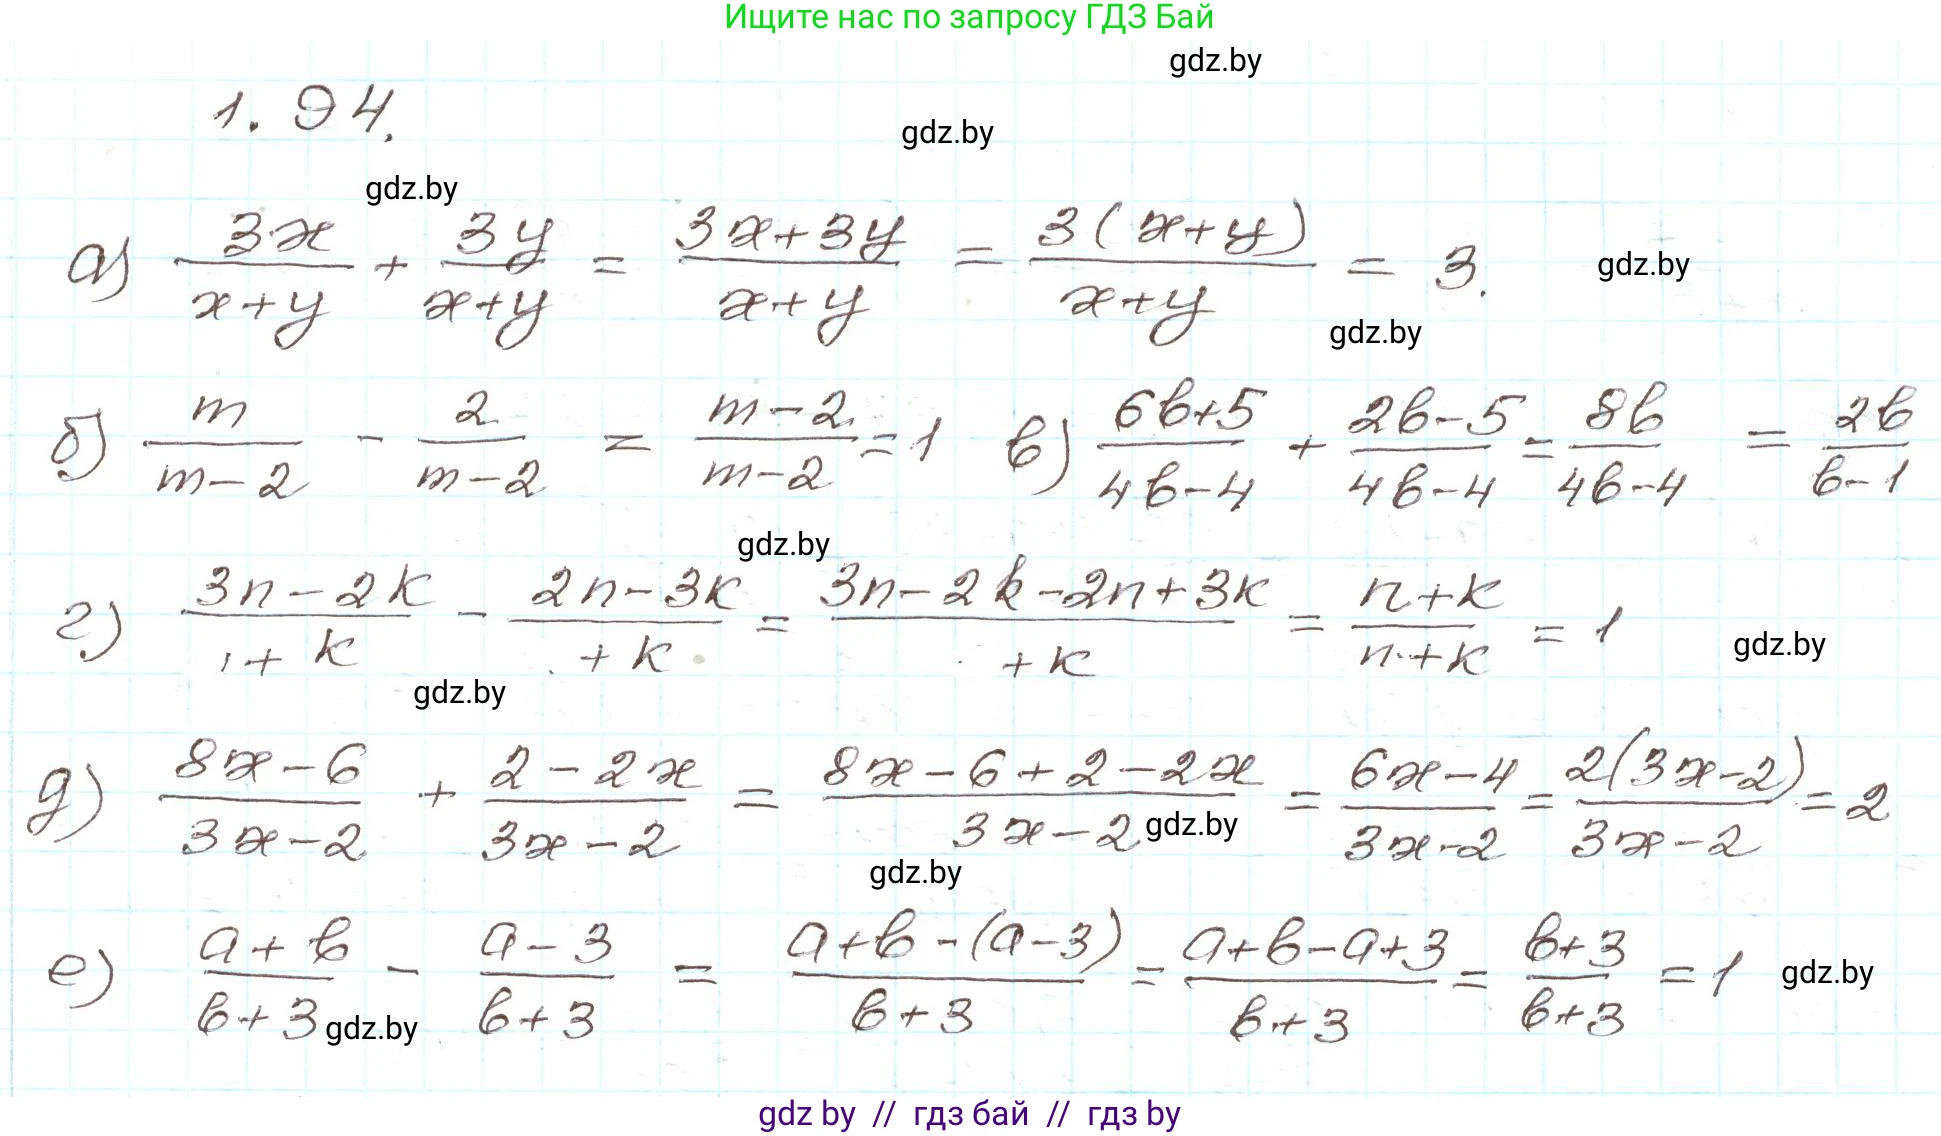 Ищите нас по запросу ГДЗ Бай
gdz.by
1.94.
gdz.by
gdz.by
а) 3x/(x+y) + 3y/(x+y) = (3x+3y)/(x+y) = 3(x+y)/(x+y) = 3.
gdz.by
gdz.by
б) m/(m-2) - 2/(m-2) = (m-2)/(m-2) = 1 в) (6b+5)/(4b-4) + (2b-5)/(4b-4) = 8b/(4b-4) = 2b/(b-1)
gdz.by
г) (3n-2k)/(+k) - (2n-3k)/(+k) = (3n-2k-2n+3k)/(+k) = (n+k)/(n+k) = 1
gdz.by
gdz.by
д) (8x-6)/(3x-2) + (2-2x)/(3x-2) = (8x-6+2-2x)/(3x-2) = (6x-4)/(3x-2) = 2(3x-2)/(3x-2) = 2
gdz.by
gdz.by
е) (a+b)/(b+3) - (a-3)/(b+3) = (a+b-(a-3))/(b+3) = (a+b-a+3)/(b+3) = (b+3)/(b+3) = 1
gdz.by
gdz.by
gdz by // гдз бай // гдз by